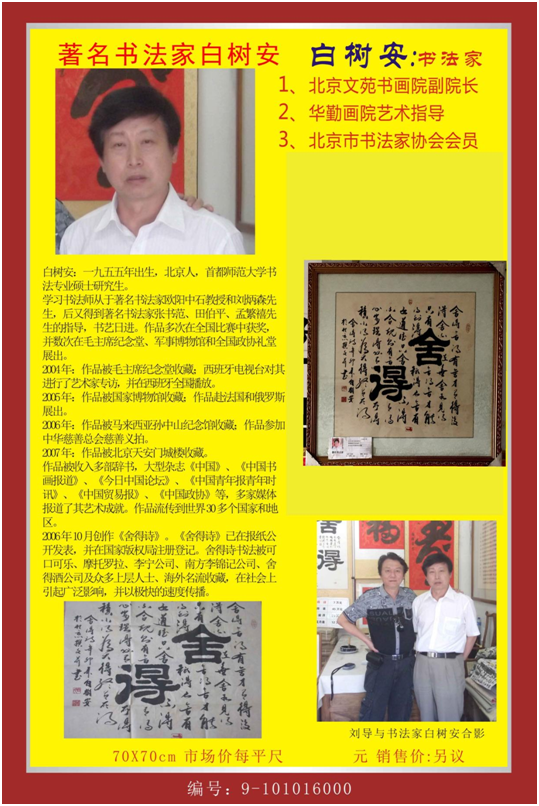 著名书法家白树安
白树安:书法家
1、北京文苑书画院副院长
2、华勤画院艺术指导
3、北京市书法家协会会员
白树安；一九五五年出生，北京人，首都师范大学书
法专业硕士研究生。
学习书法师从于著名书法家欧阳中石教授和刘炳森先
生，后又得到著名书法家张书范、田伯平、孟繁禧先
生的指导，书艺日进。作品多次在全国比赛中获奖，
并数次在毛主席纪念堂、军事博物馆和全国政协礼堂
展出。
2004年；作品被毛主席纪念堂收藏；西班牙电视台对其
进行了艺术家专访，并在西班牙全国播放。
2005年；作品被国家博物馆收藏；作品赴法国和俄罗斯
展出。
2006年；作品被马来西亚孙中山纪念馆收藏；作品参加
中华慈善总会慈善义拍。
2007年；作品被北京天安门城楼收藏。
作品被收入多部辞书，大型杂志《中国》、《中国书
画报道》、《今日中国论坛》、《中国青年报青年时
讯》、《中国贸易报》、《中国政协》等，多家媒体
报道了其艺术成就。作品流传到世界30多个国家和地
区。
2006年10月创作《舍得诗》。《舍得诗》已在报纸公
开发表，并在国家版权局注册登记。舍得诗书法被可
口可乐、摩托罗拉、李宁公司、南方李锦记公司、舍
得酒公司及众多上层人士、海外名流收藏，在社会上
引起广泛影响，并以极快的速度传播。
舍得
舍得
刘导与书法家白树安合影
70X70cm 市场价每平尺 元 销售价:另议
编号：9-101016000